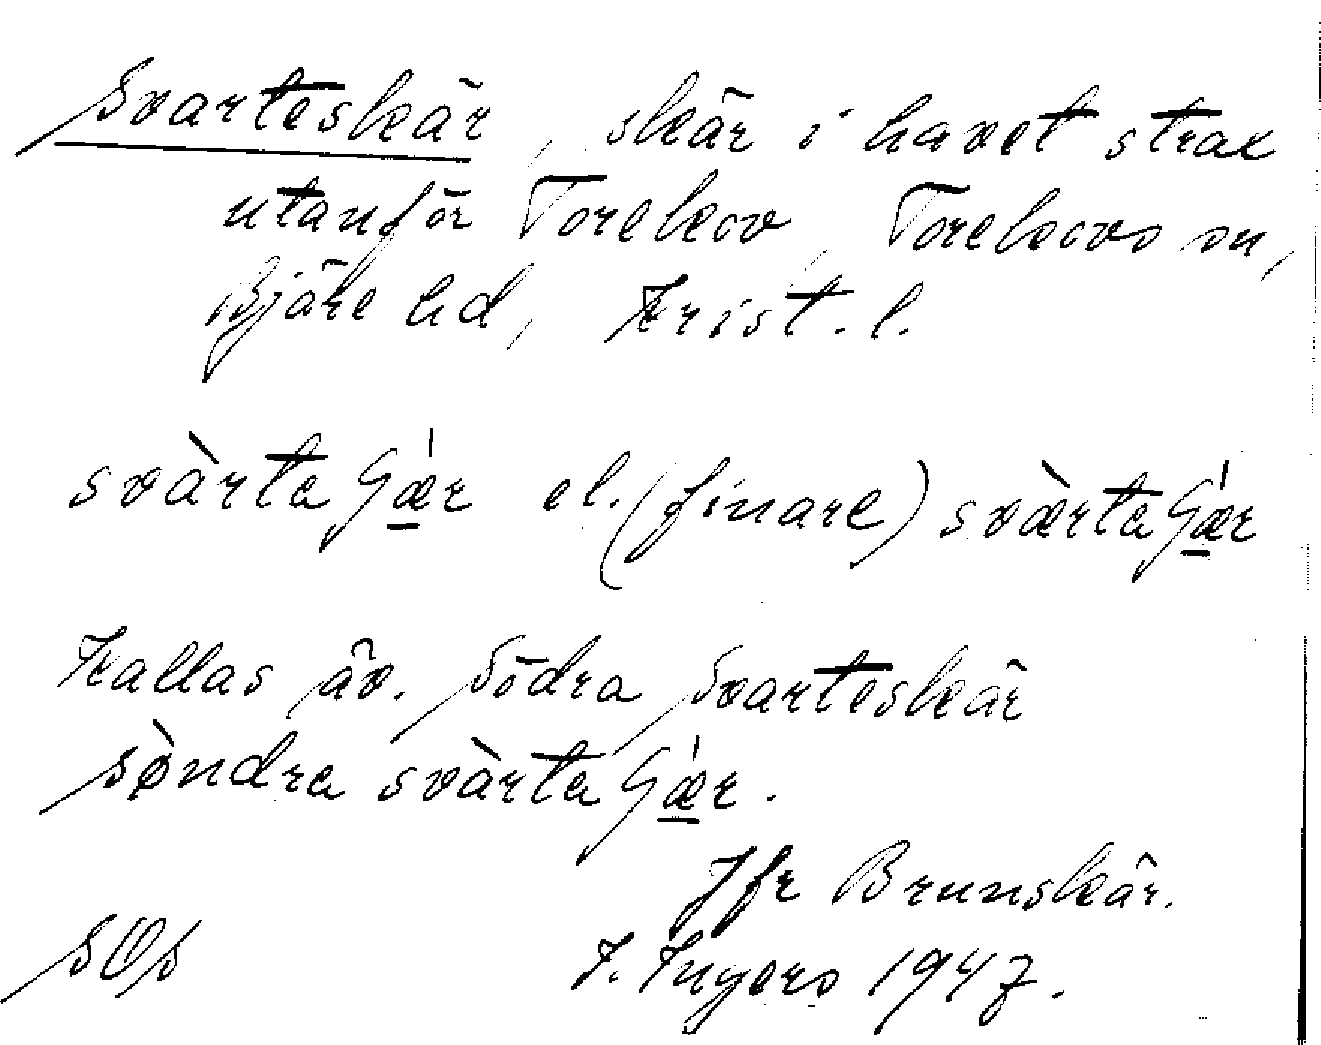 Svarteskär, skär i havet strax
utanför Torekov, Torekovs sn,
Bjäre hd, Krist. l.
svàrtaʃǽ̲r el. (finare) svæ̀rtaʃǽ̲r
Kallas äv. Södra Svarteskär
sø̀ndra svàrtaʃǽ̲r.
Jfr Brunskär.
SOS I. Ingers 1947.